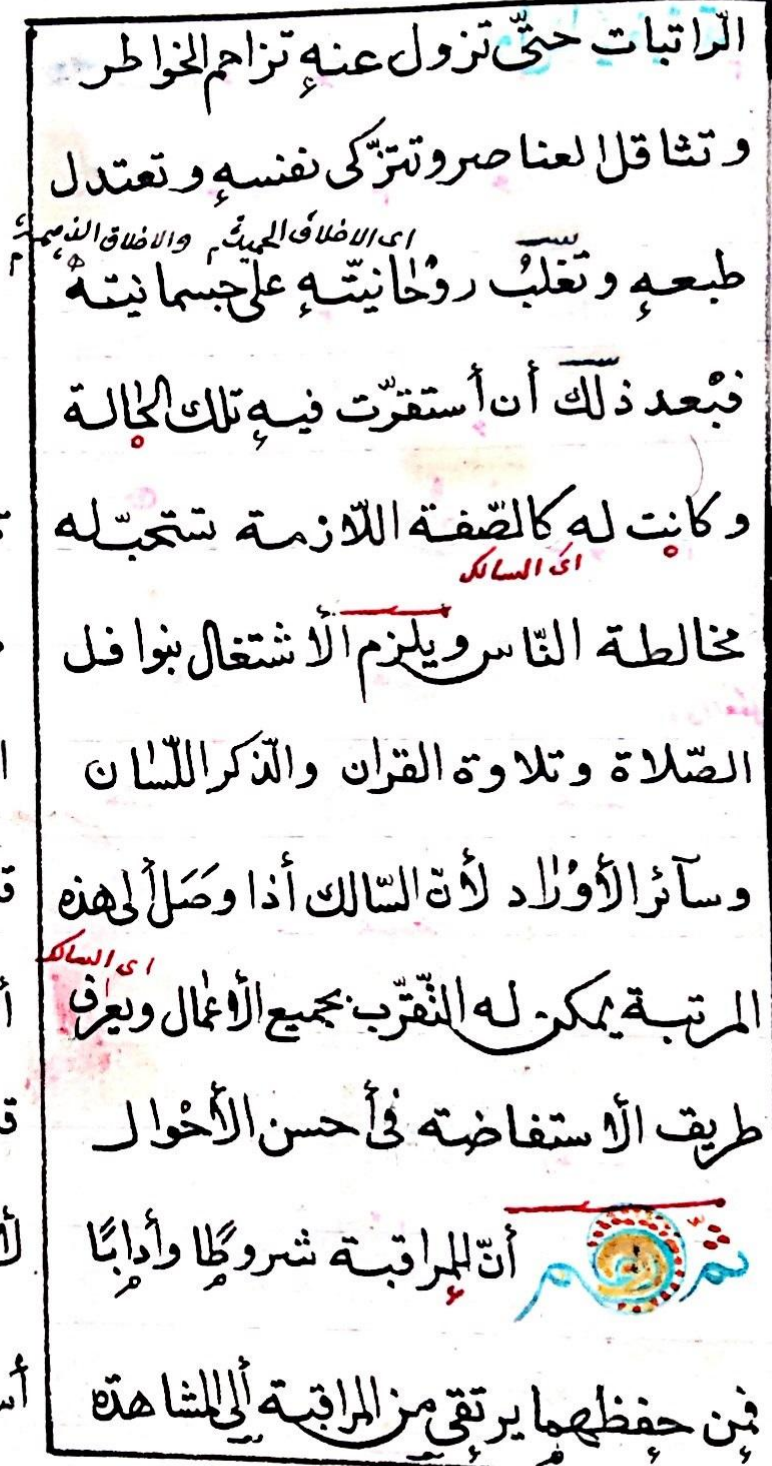 الرّاتبات حتّى تزول عنهِ تزاحم الخواطر
وتثاقل العناصر وتتزّكى نفسهِ وتعتدل
اى الاخلاق الحميدة والاخلاق الذميمة
طبعهِ وتغلبُ روحانيّتهِ على جسمانيتهِ
فبْعد ذلك أن أستقرّت فيهِ تلك الحالة
وكانت له كالصّفة اللّازمة تستحبّ له
اى السالك
مخالطة النّاس ويلزم الأشتغال بنوافل
الصّلاة وتلاوة القران والذّكر اللّسان
وسآئر الأوْراد لأنّ السّالك أذا وصَل ألى هذه
اى السالك
المرتبة يمكن له التّقرّب بجميع الأعمال ويعرف
طريق الأستفاضته فى أحسن الأحْوال
ثمّ أنّ للمراقبة شروطًا وأدابًا
فمن حفظهما يرتقى من المراقبة ألى المشاهدة